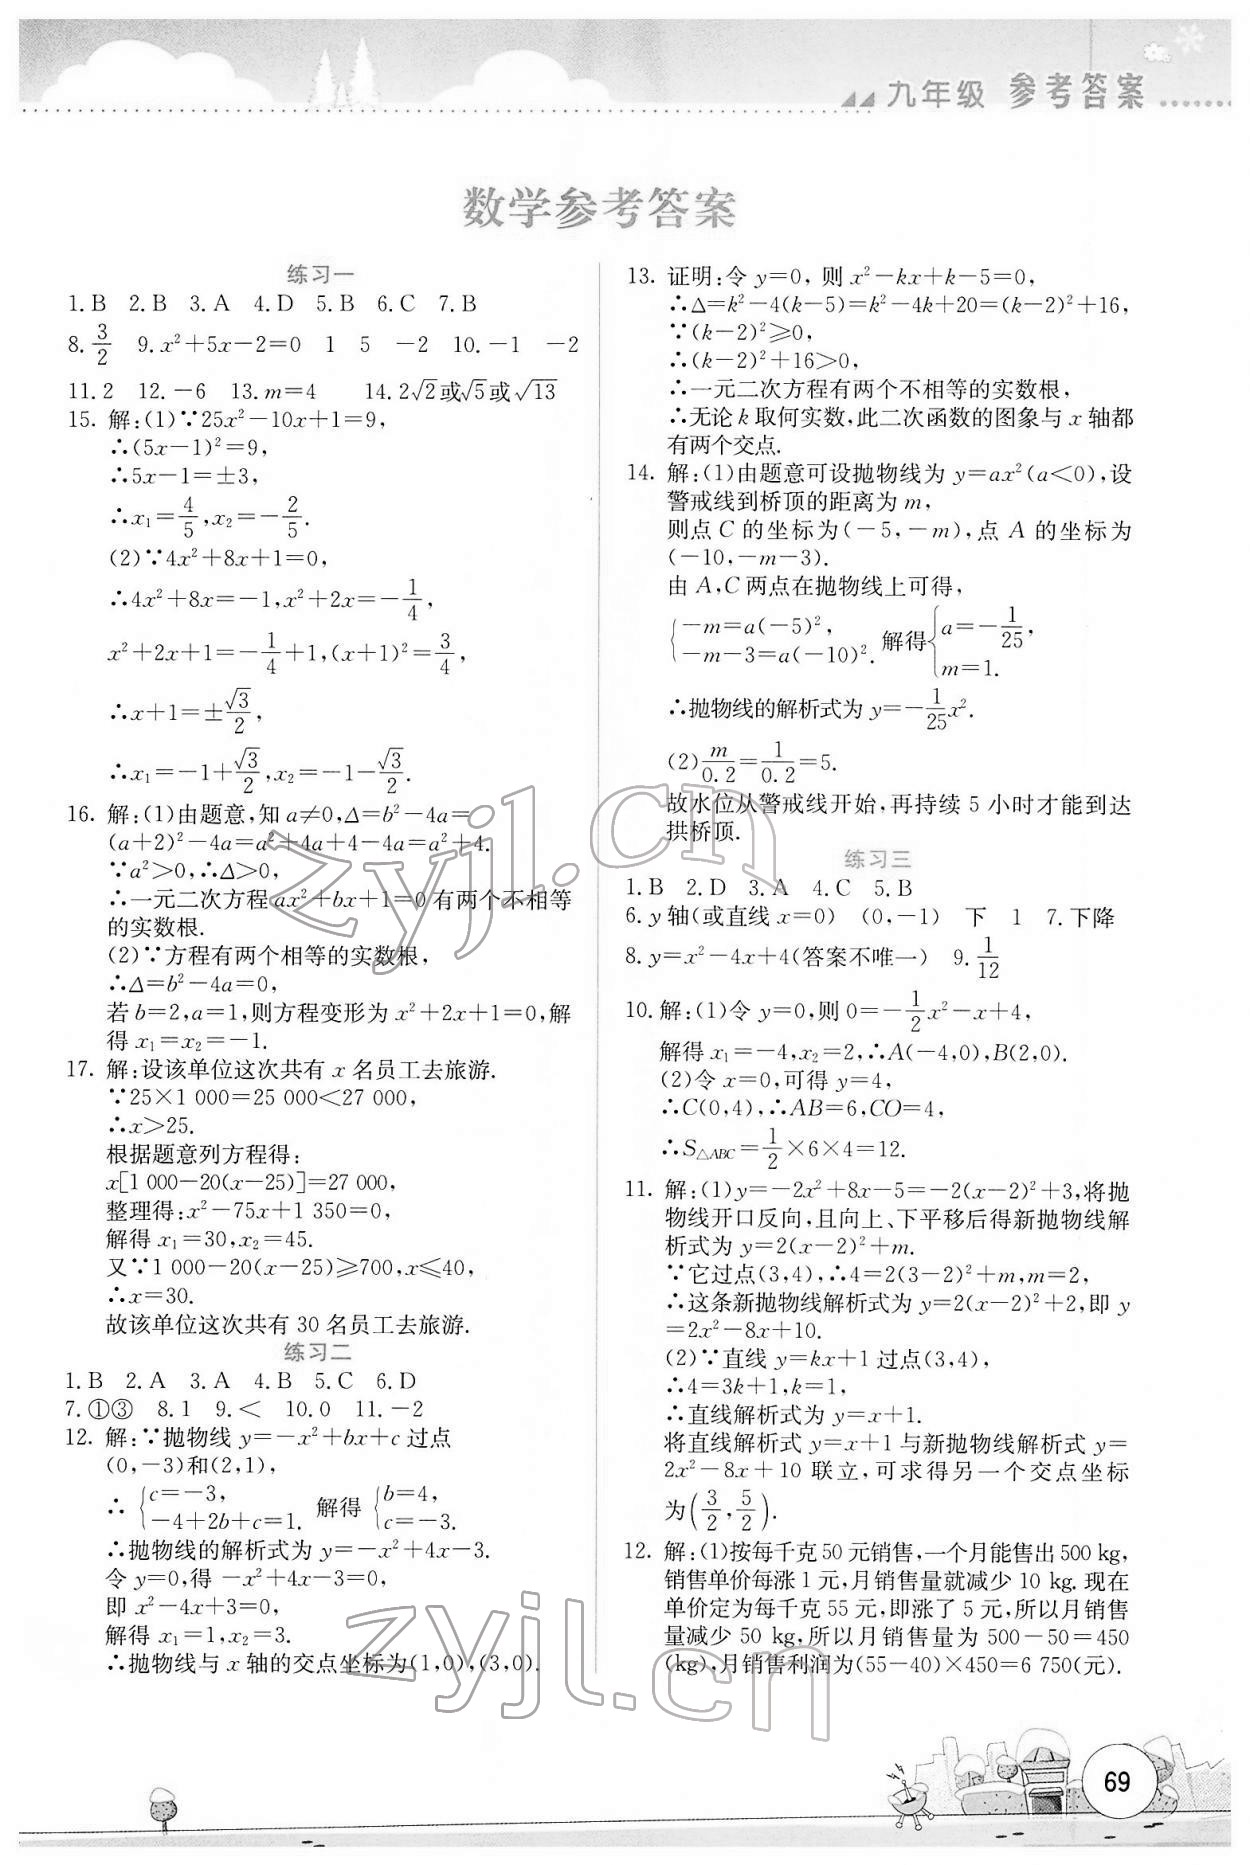 九年级 参考答案
数学参考答案
练习一
1.B 2.B 3.A 4.D 5.B 6.C 7.B
8.3/2 9.x²+5x−2=0 1 5 −2 10.−1 −2
11.2 12.−6 13.m=4 14.2√2或√5或√13
15. 解:(1)∵25x²−10x+1=9,
∴(5x−1)²=9,
∴5x−1=±3,
∴x₁=4/5,x₂=−2/5.
(2)∵4x²+8x+1=0,
∴4x²+8x=−1,x²+2x=−1/4,
x²+2x+1=−1/4+1,(x+1)²=3/4,
∴x+1=±√3/2,
∴x₁=−1+√3/2,x₂=−1−√3/2.
16. 解:(1)由题意,知a≠0,Δ=b²−4a=
(a+2)²−4a=a²+4a+4−4a=a²+4.
∵a²>0,∴Δ>0,
∴一元二次方程ax²+bx+1=0有两个不相等
的实数根.
(2)∵方程有两个相等的实数根,
∴Δ=b²−4a=0,
若b=2,a=1,则方程变形为x²+2x+1=0,解
得x₁=x₂=−1.
17. 解:设该单位这次共有x名员工去旅游.
∵25×1 000=25 000<27 000,
∴x>25.
根据题意列方程得:
x[1 000−20(x−25)]=27 000,
整理得:x²−75x+1 350=0,
解得x₁=30,x₂=45.
又∵1 000−20(x−25)≥700,x≤40,
∴x=30.
故该单位这次共有30名员工去旅游.
练习二
1.B 2.A 3.A 4.B 5.C 6.D
7.①③ 8.1 9.< 10.0 11.−2
12. 解:∵抛物线y=−x²+bx+c过点
(0,−3)和(2,1),
∴{c=−3, −4+2b+c=1. 解得{b=4, c=−3.
∴抛物线的解析式为y=−x²+4x−3.
令y=0,得−x²+4x−3=0,
即x²−4x+3=0,
解得x₁=1,x₂=3.
∴抛物线与x轴的交点坐标为(1,0),(3,0).
13. 证明:令y=0,则x²−kx+k−5=0,
∴Δ=k²−4(k−5)=k²−4k+20=(k−2)²+16,
∵(k−2)²≥0,
∴(k−2)²+16>0,
∴一元二次方程有两个不相等的实数根,
∴无论k取何实数,此二次函数的图象与x轴都
有两个交点.
14. 解:(1)由题意可设抛物线为y=ax²(a<0),设
警戒线到桥顶的距离为m,
则点C的坐标为(−5,−m),点A的坐标为
(−10,−m−3).
由A,C两点在抛物线上可得,
{−m=a(−5)², −m−3=a(−10)². 解得{a=−1/25, m=1.
∴抛物线的解析式为y=−1/25x².
(2)m/0.2=1/0.2=5.
故水位从警戒线开始,再持续5小时才能到达
拱桥顶.
练习三
1.B 2.D 3.A 4.C 5.B
6.y轴(或直线x=0) (0,−1) 下 1 7.下降
8.y=x²−4x+4(答案不唯一) 9.1/12
10. 解:(1)令y=0,则0=−1/2x²−x+4,
解得x₁=−4,x₂=2,∴A(−4,0),B(2,0).
(2)令x=0,可得y=4,
∴C(0,4),∴AB=6,CO=4,
∴S△ABC=1/2×6×4=12.
11. 解:(1)y=−2x²+8x−5=−2(x−2)²+3,将抛
物线开口反向,且向上、下平移后得新抛物线解
析式为y=2(x−2)²+m.
∵它过点(3,4),∴4=2(3−2)²+m,m=2,
∴这条新抛物线解析式为y=2(x−2)²+2,即y
=2x²−8x+10.
(2)∵直线y=kx+1过点(3,4),
∴4=3k+1,k=1,
∴直线解析式为y=x+1.
将直线解析式y=x+1与新抛物线解析式y=
2x²−8x+10联立,可求得另一个交点坐标
为(3/2,5/2).
12. 解:(1)按每千克50元销售,一个月能售出500 kg,
销售单价每涨1元,月销售量就减少10 kg.现在
单价定为每千克55元,即涨了5元,所以月销售
量减少50 kg,所以月销售量为500−50=450
(kg),月销售利润为(55−40)×450=6 750(元).
69
zyjl.cn
zyjl.cn